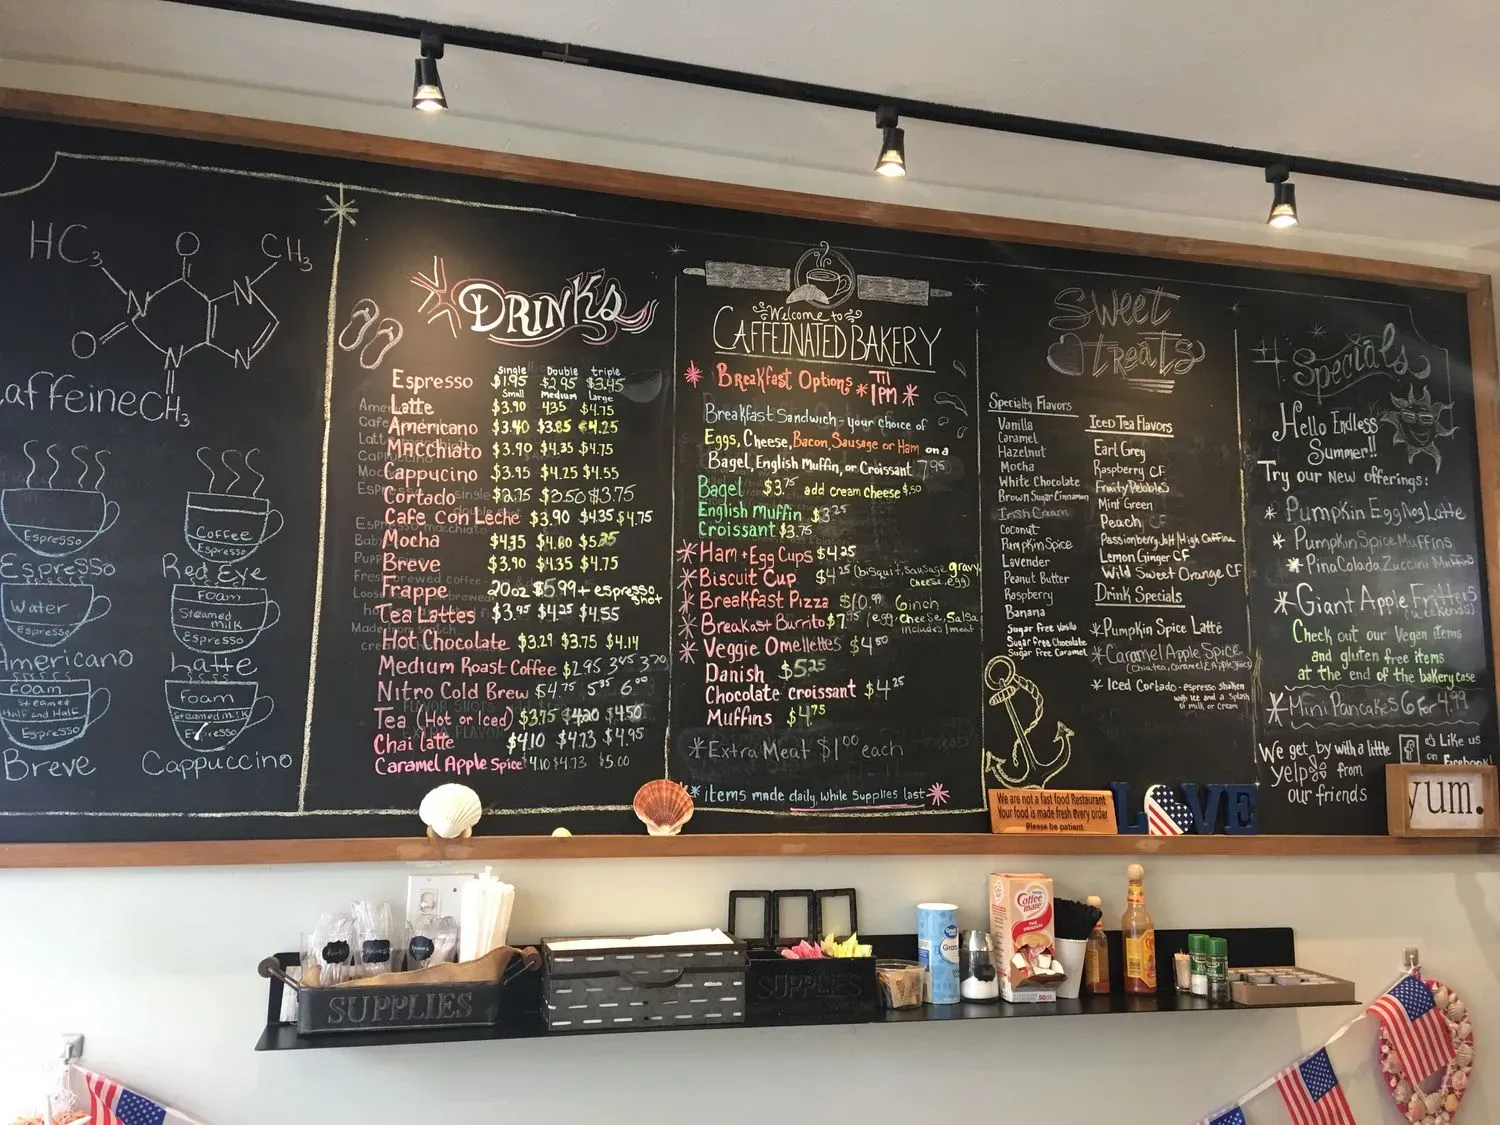 HC₃
O
CH₃
N
N
O
N
N
CH₃
Espresso
Espresso
Coffee
Espresso
Red Eye
Water
Espresso
Americano
Foam
Steamed
milk
Espresso
Latte
Foam
Steamed
Half and Half
Espresso
Breve
Foam
Steamed milk
Espresso
Cappuccino
DRINKS
Single Double triple
Espresso $1.95 $2.95 $3.45
Small Medium large
Latte $3.90 435 $4.75
Americano $3.40 $3.85 $4.25
Macchiato $3.90 $4.35 $4.75
Cappucino $3.95 $4.25 $4.55
Cortado $2.75 $3.50 $3.75
Cafe Con Leche $3.90 $4.35 $4.75
Mocha $4.35 $4.80
Breve $3.90 $4.35 $4.75
Frappe 20oz $5.99 + espresso shot
Tea Lattes $3.95 $4.25 $4.55
Hot Chocolate $3.29 $3.75 $4.14
Medium Roast Coffee $2.95 3.45 3.70
Nitro Cold Brew $4.75 5.35 6.00
Tea (Hot or Iced) $3.75 $4.20 $4.50
Chai latte $4.10 $4.73 $4.95
Caramel Apple Spice $4.10 $4.73 $5.00
Welcome to
CAFFEINATED BAKERY
* Breakfast Options * Til 1PM *
Breakfast Sandwich - your choice of
Eggs, Cheese, Bacon, Sausage or Ham on a
Bagel, English Muffin, or Croissant 7.95
Bagel $3.75 add cream cheese $.50
English Muffin $3.25
Croissant $3.75
* Ham + Egg Cups $4.25
* Biscuit Cup $4.25 (bisquit, sausage, gravy, cheese, egg)
* Breakfast Pizza $10.99 6inch
* Breakast Burrito $7.95 (egg, cheese, salsa
includes 1 meat
* Veggie Omellettes $4.50
Danish $5.25
Chocolate croissant $4.25
Muffins $4.75
* Extra Meat $1.00 each
* items made daily, while supplies last *
SWEET
treats
Specialty Flavors
Vanilla
Caramel
Hazelnut
Mocha
White Chocolate
Brown Sugar Cinnamon
Irish Cream
Coconut
Pumpkin Spice
Lavender
Peanut Butter
Raspberry
Banana
Sugar Free Vanilla
Sugar Free Chocolate
Sugar Free Caramel
Iced Tea Flavors
Earl Grey
Raspberry CF
Fruity Pebbles
Mint Green
Peach CF
Passionberry Jolt High Caffine
Lemon Ginger CF
Wild Sweet Orange CF
Drink Specials
* Pumpkin Spice Latté
* Caramel Apple Spice
(Chia tea, caramel & Apple juice)
* Iced Cortado - espresso shaken
with ice and a splash
of milk or cream
# Specials
Hello Endless
Summer!!
Try our new offerings:
* Pumpkin EggNog Latte
* Pumpkin Spice Muffins
* Pina Colada Zuccini Muffins
* Giant Apple Fritters
Check out our Vegan items
and gluten free items
at the end of the bakery case
* Mini Pancakes 6 for 4.99
We get by with a little
yelp from
our friends
f Like us
on
Facebook!
We are not a fast food Restaurant
Your food is made fresh every order
Please be patient
LOVE
yum.
SUPPLIES
SUPPLIES
Coffee
mate